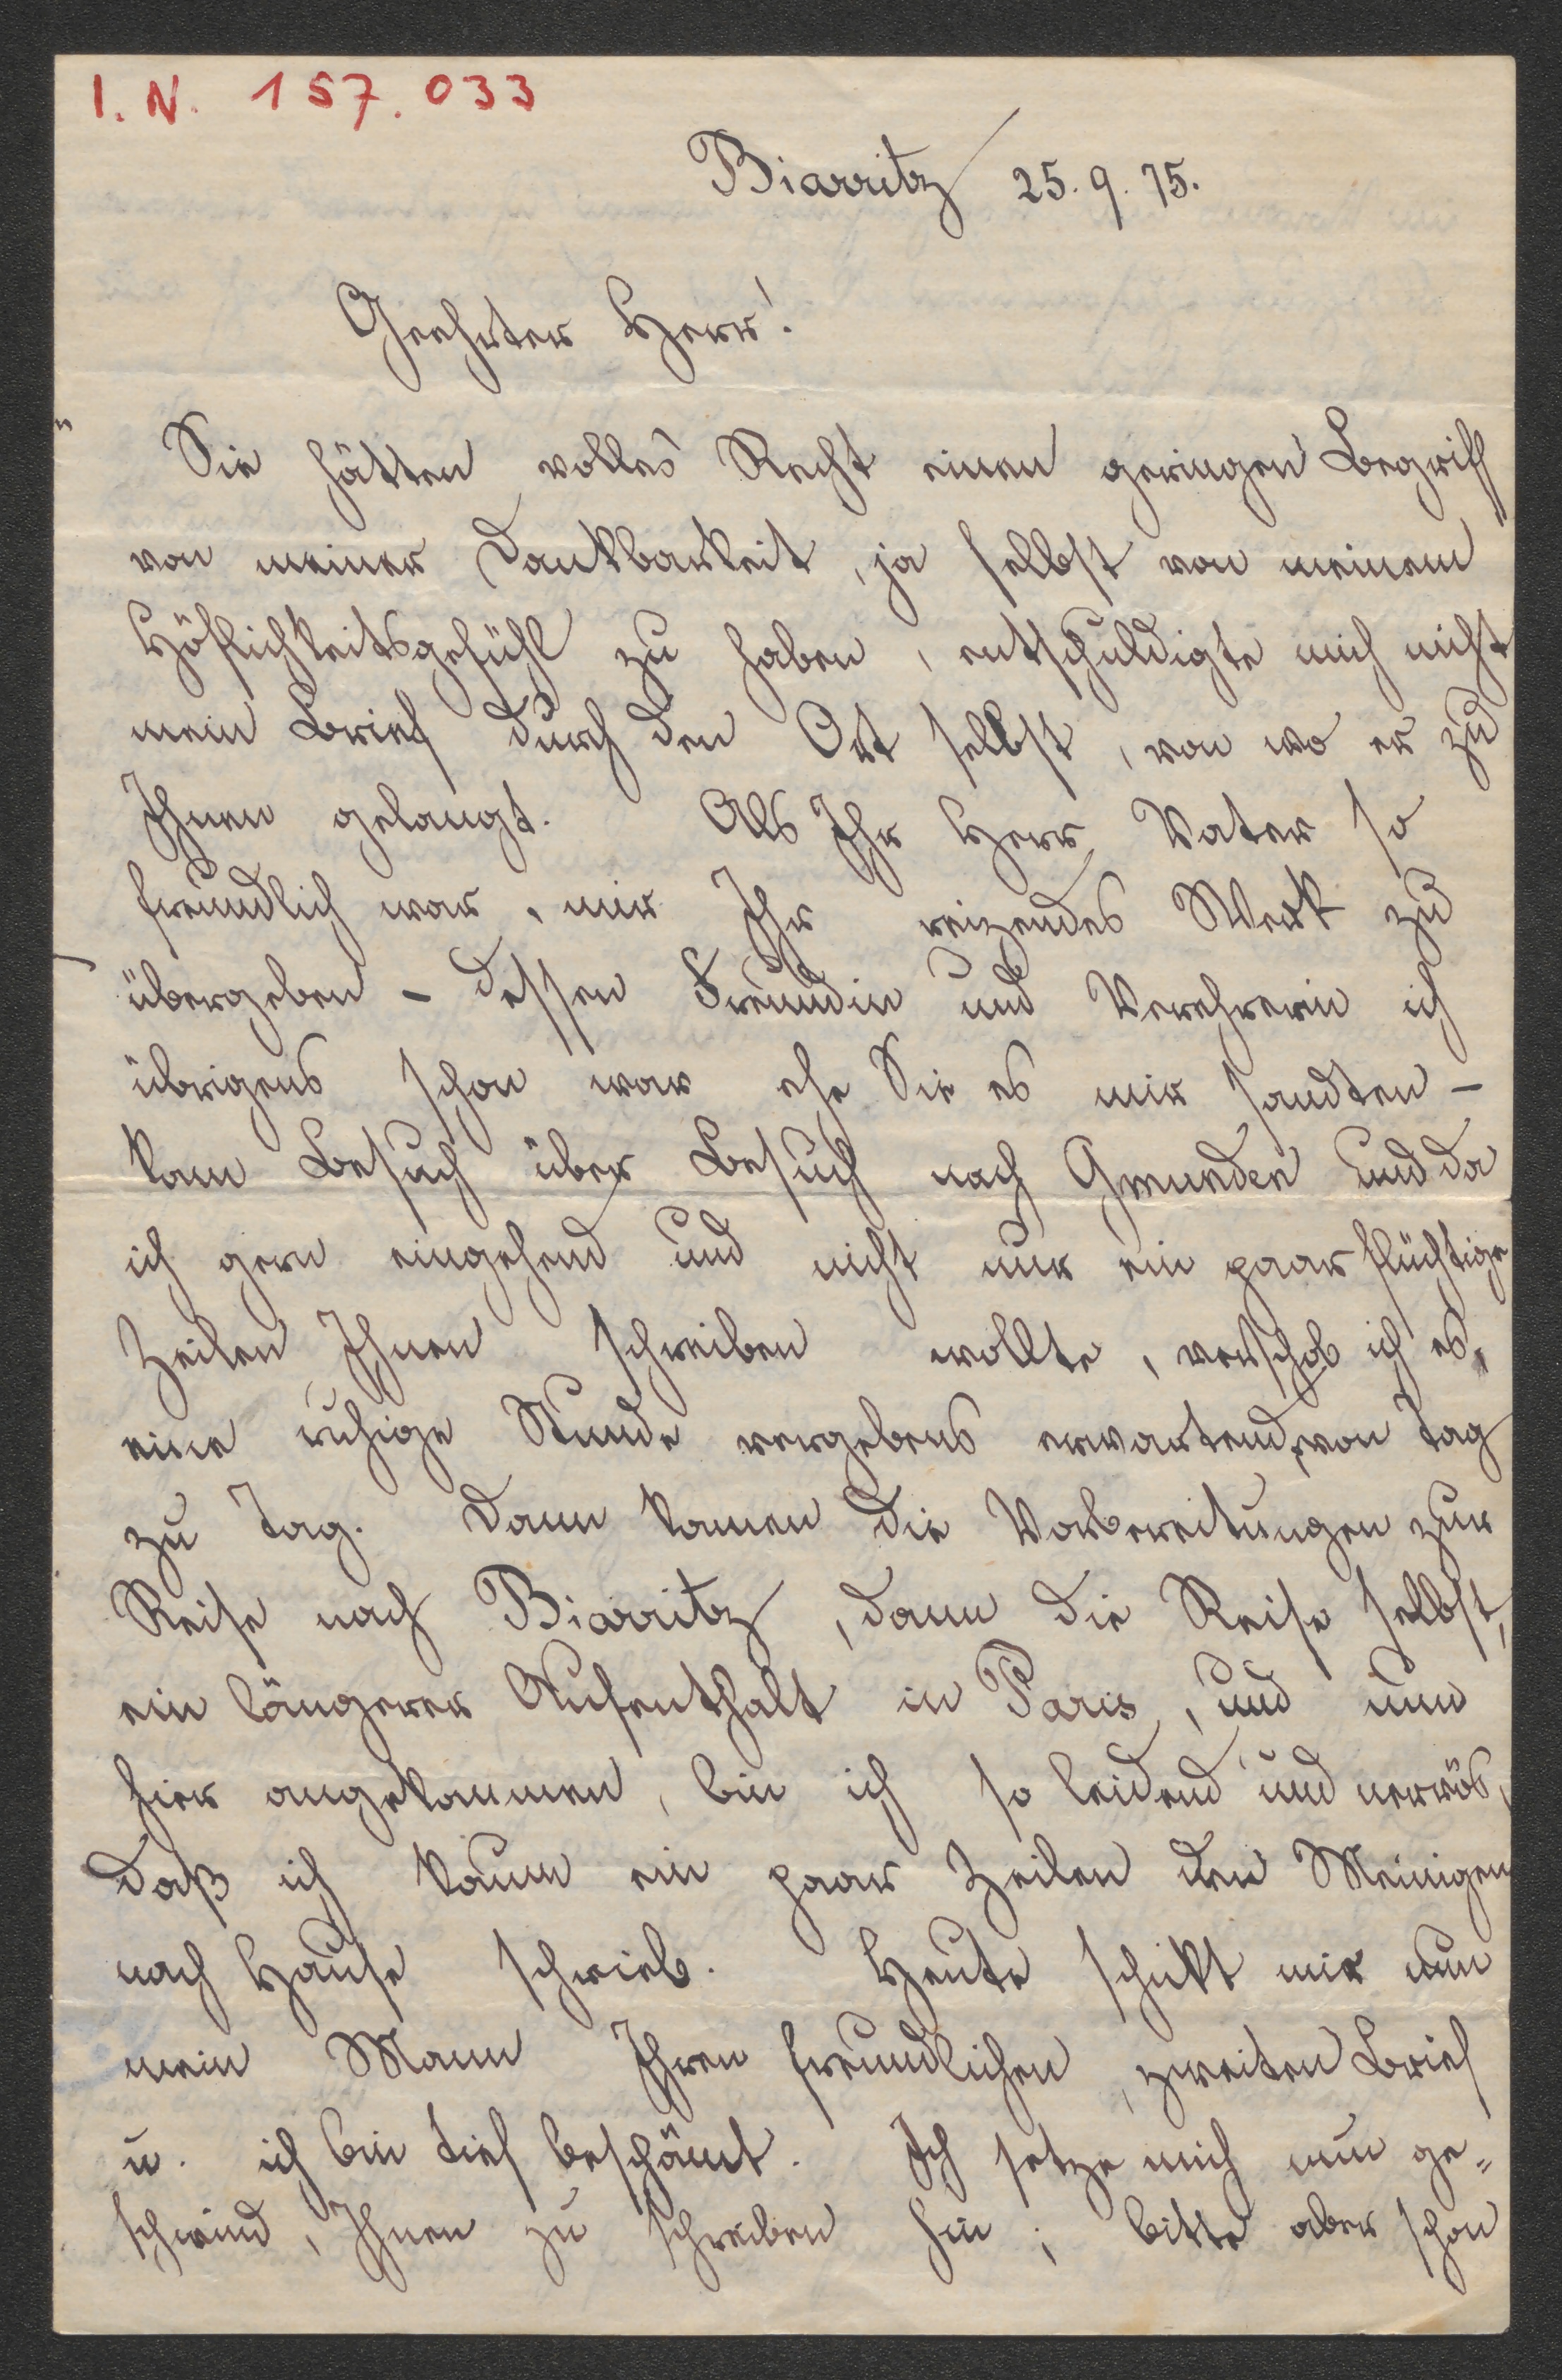 I.N. 157.033
Biarritz 25.9.75.
Geehrter Herr!
Sie hätten volles Recht einen geringen Begriff
von meiner Dankbarkeit, ja selbst von meinem
Höflichkeitsgefühl zu haben, entschuldigte mich nicht
mein Brief durch den Ort selbst, von wo er zu
Ihnen gelangt. Als Ihr Herr Vater so
freundlich war, mir Ihr reizendes Werk zu
übergeben – dessen Freundin und Verehrerin ich
übrigens schon war ehe Sie es mir sandten –
kam Besuch über Besuch nach Gmunden und da
ich gern eingehend und nicht nur ein paar flüchtige
Zeilen Ihnen schreiben wollte, verschob ich es,
eine ruhige Stunde vergebens erwartend, von Tag
zu Tag. Dann kamen die Vorbereitungen zur
Reise nach Biarritz, dann die Reise selbst,
ein längerer Aufenthalt in Paris, und nun
hier angekommen, bin ich so leidend und nervös,
daß ich kaum ein paar Zeilen den Meinigen
nach Hause schrieb. Heute schikt mir nun
mein Mann Ihren freundlichen, zweiten Brief
u. ich bin tief beschämt. Ich setze mich nun ge=
schwind, Ihnen zu schreiben hin; bitte aber schon